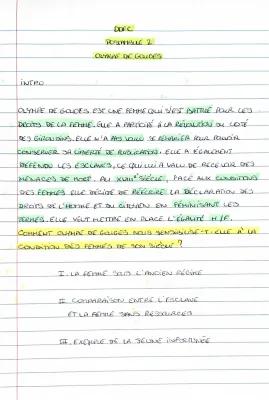 DDFC
POSTAMBULE 2
OLYMPE DE GOUGES
INTRO
OLYMPE DE GOUGES EST UNE FEMME QUI S'EST BATTUE POUR LES
DROITS DE LA FEMME. ELLE A PARTICIPÉ À LA RÉVOLUTION DU CÔTÉ
DES GIRONDINS. ELLE N'A PAS VOULU SE REMARIER POUR POUVOIR
CONSERVER SA LIBERTÉ DE PUBLICATION. ELLE A ÉGALEMENT
DÉFENDU LES ESCLAVES, CE QUI LUI A VALU DE RECEVOIR DES
MENACES DE MORT. AU XVIIIe SIÈCLE, FACE AUX CONDITIONS
DES FEMMES ELLE DÉCIDE DE RÉÉCRIRE LA DÉCLARATION DES
DROITS DE L'HOMME ET DU CITOYEN EN FÉMINISANT LES
TERMES. ELLE VEUT METTRE EN PLACE L'ÉGALITÉ H/F.
COMMENT OLYMPE DE GOUGES NOUS SENSIBILISE-T-ELLE À LA
CONDITION DES FEMMES DE SON SIÈCLE ?
I. LA FEMME SOUS L'ANCIEN RÉGIME
II. COMPARAISON ENTRE L'ESCLAVE
ET LA FEMME SANS RESSOURCES
III. EXEMPLE DE LA JEUNE INFORTUNÉE